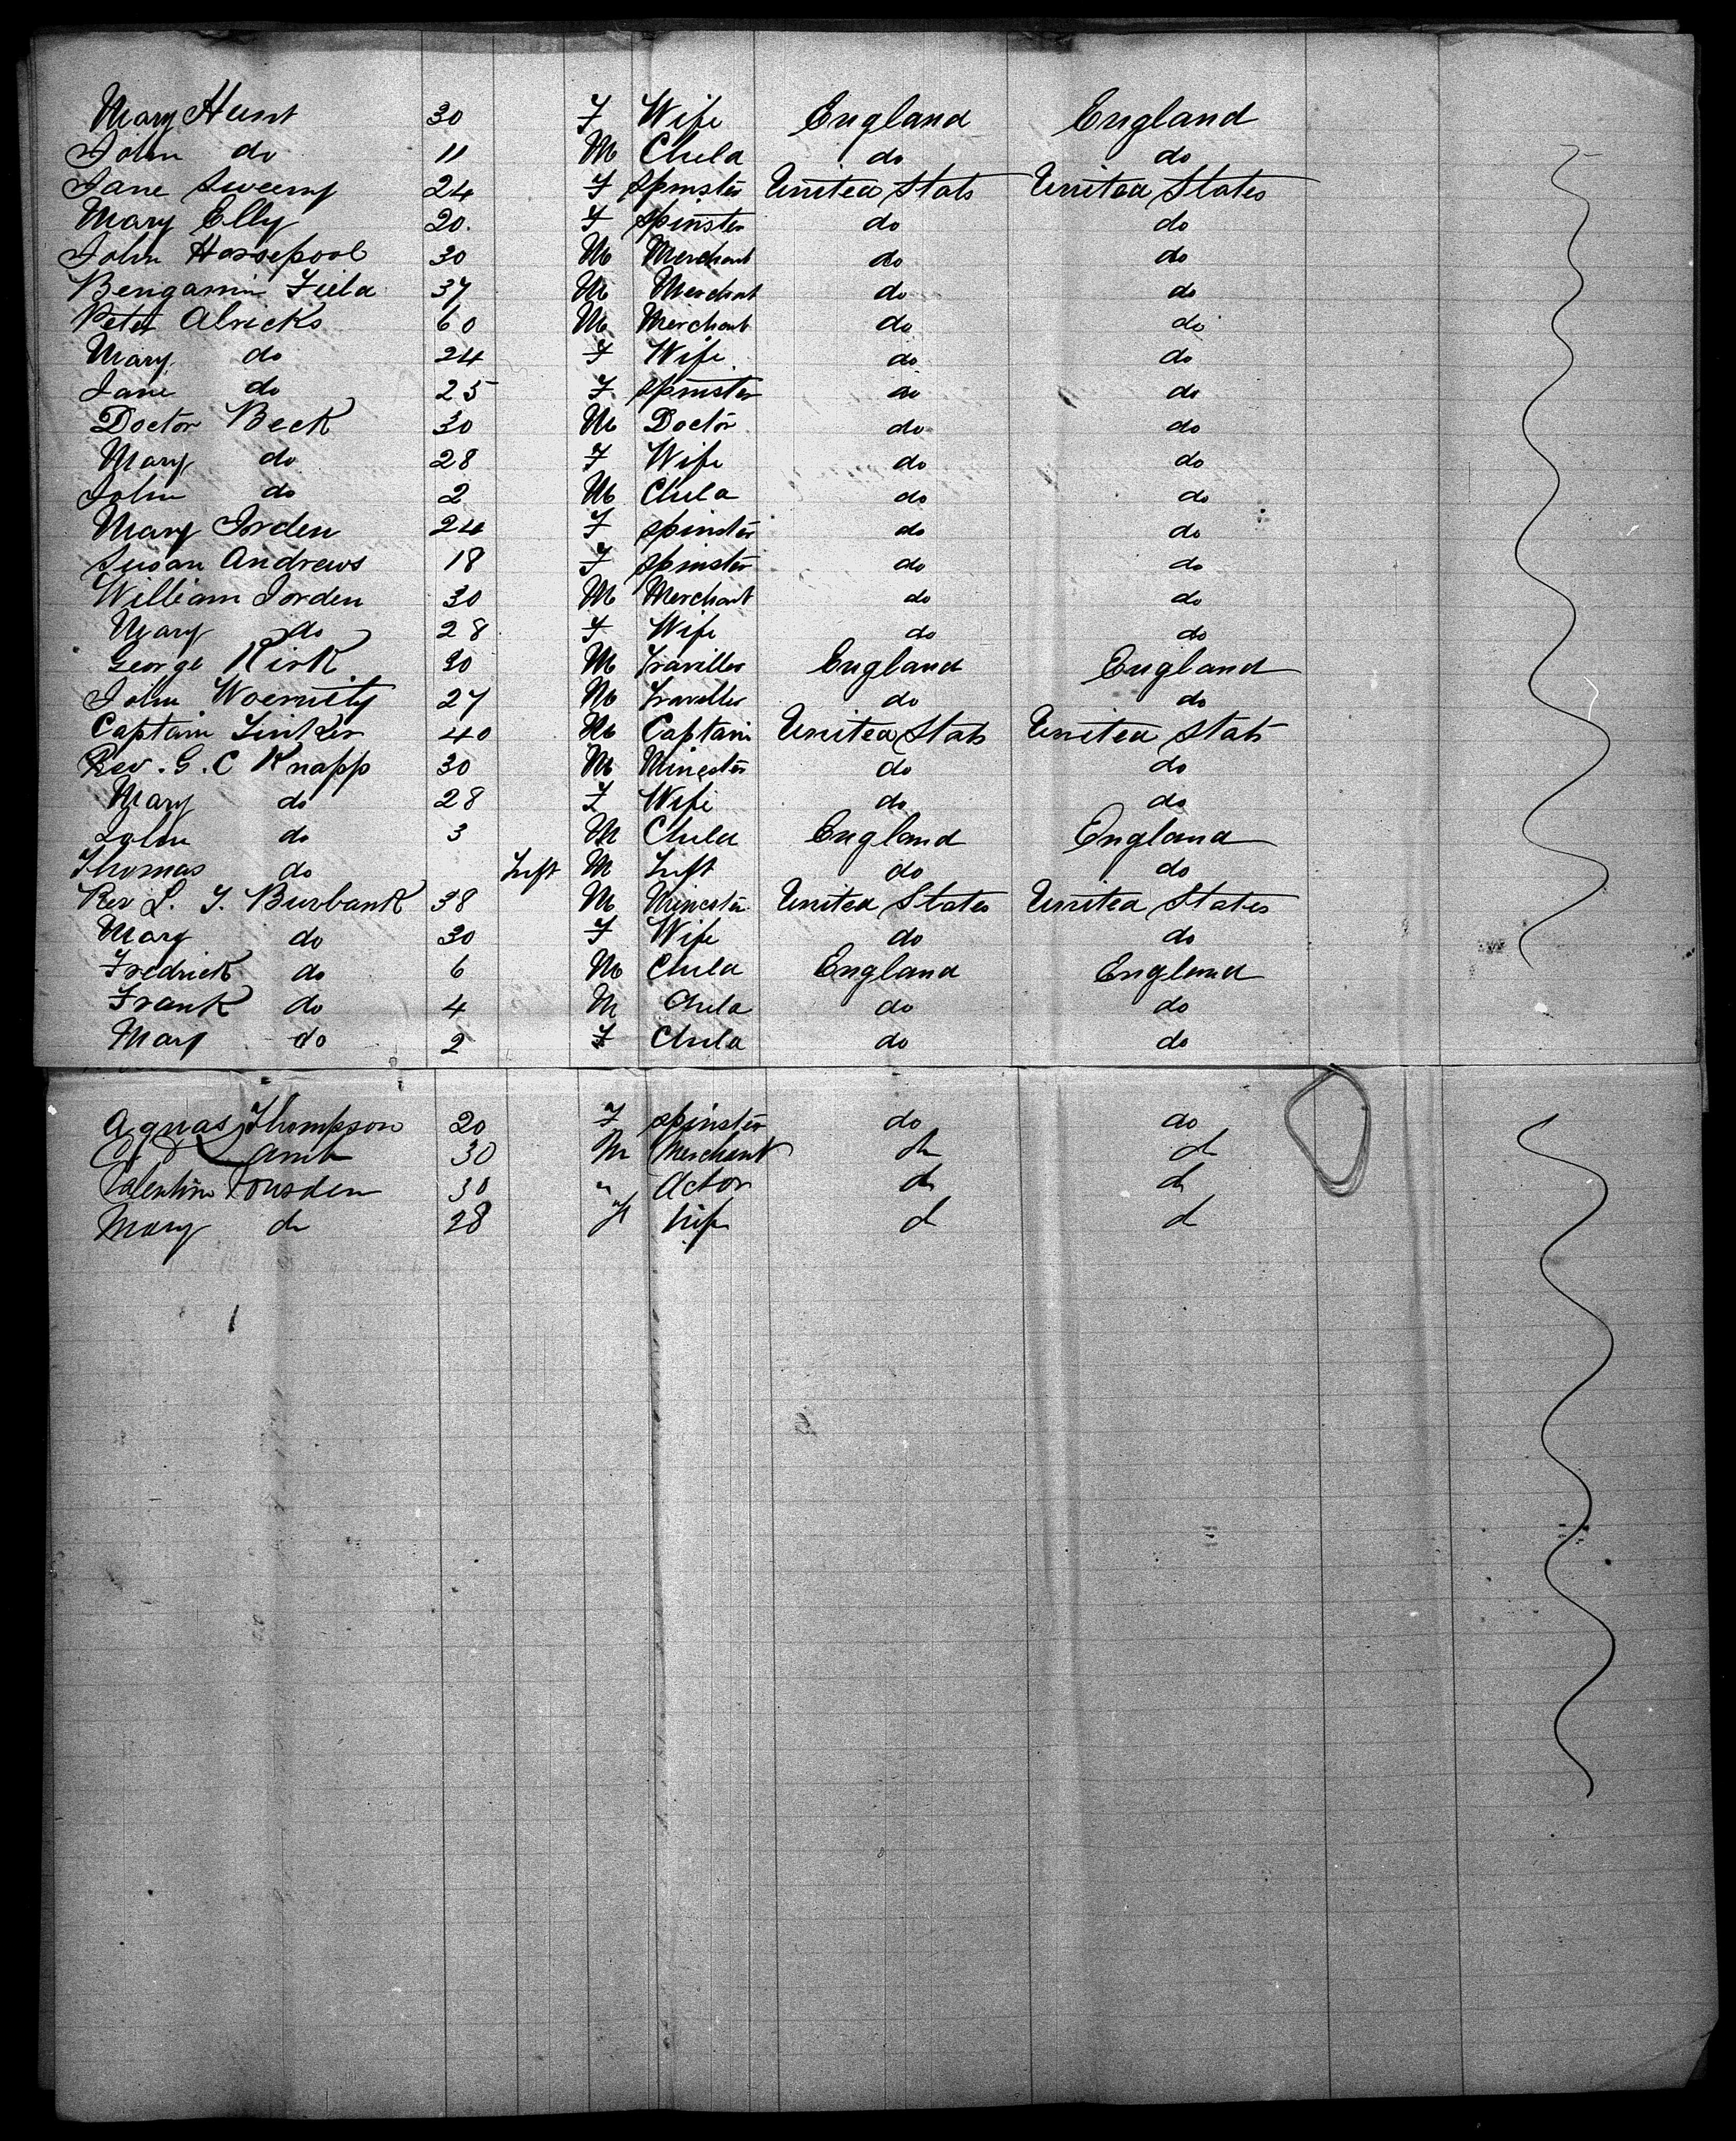 Mary Hunt 30 F Wife England England
John do 11 M Child do do
Jane Sweeny 24 F Spinster United Stats United States
Mary Elly 20. F Spinster do do
John Horsepool 30 M Merchant do do
Bengamin Field 37 M Merchant do do
Peter Alricks 60 M Merchant do do
Mary do 24 F Wife do do
Jane do 25 F Spinster do do
Doctor Beck 30 M Doctor do do
Mary do 28 F Wife do do
John do 2 M Child do do
Mary Jorden 24 F Spinster do do
Susan Andrews 18 F Spinster do do
William Jorden 30 M Merchant do do
Mary do 28 F Wife do do
George Kirk 30 M Traviller England England
John 27 M Traviller do do
Captain Linker 40 M Captain United Stats United Stats
Rev. G. C Knapp 30 M Minester do do
Mary do 28 F Wife do do
John do 3 M Child England England
Thomas do Inft M Inft do do
Rev L. T. Burbank 38 M Minester United States United States
Mary do 30 F Wife do do
Fredrick do 6 M Child England England
Frank do 4 M Child do do
Mary do 2 F Child do do
Agnas Thompson 20 F Spinster do do
Lamb 30 M Merchant do do
Valentine Vousden 30 " Actor do do
Mary do 28 f wife do do